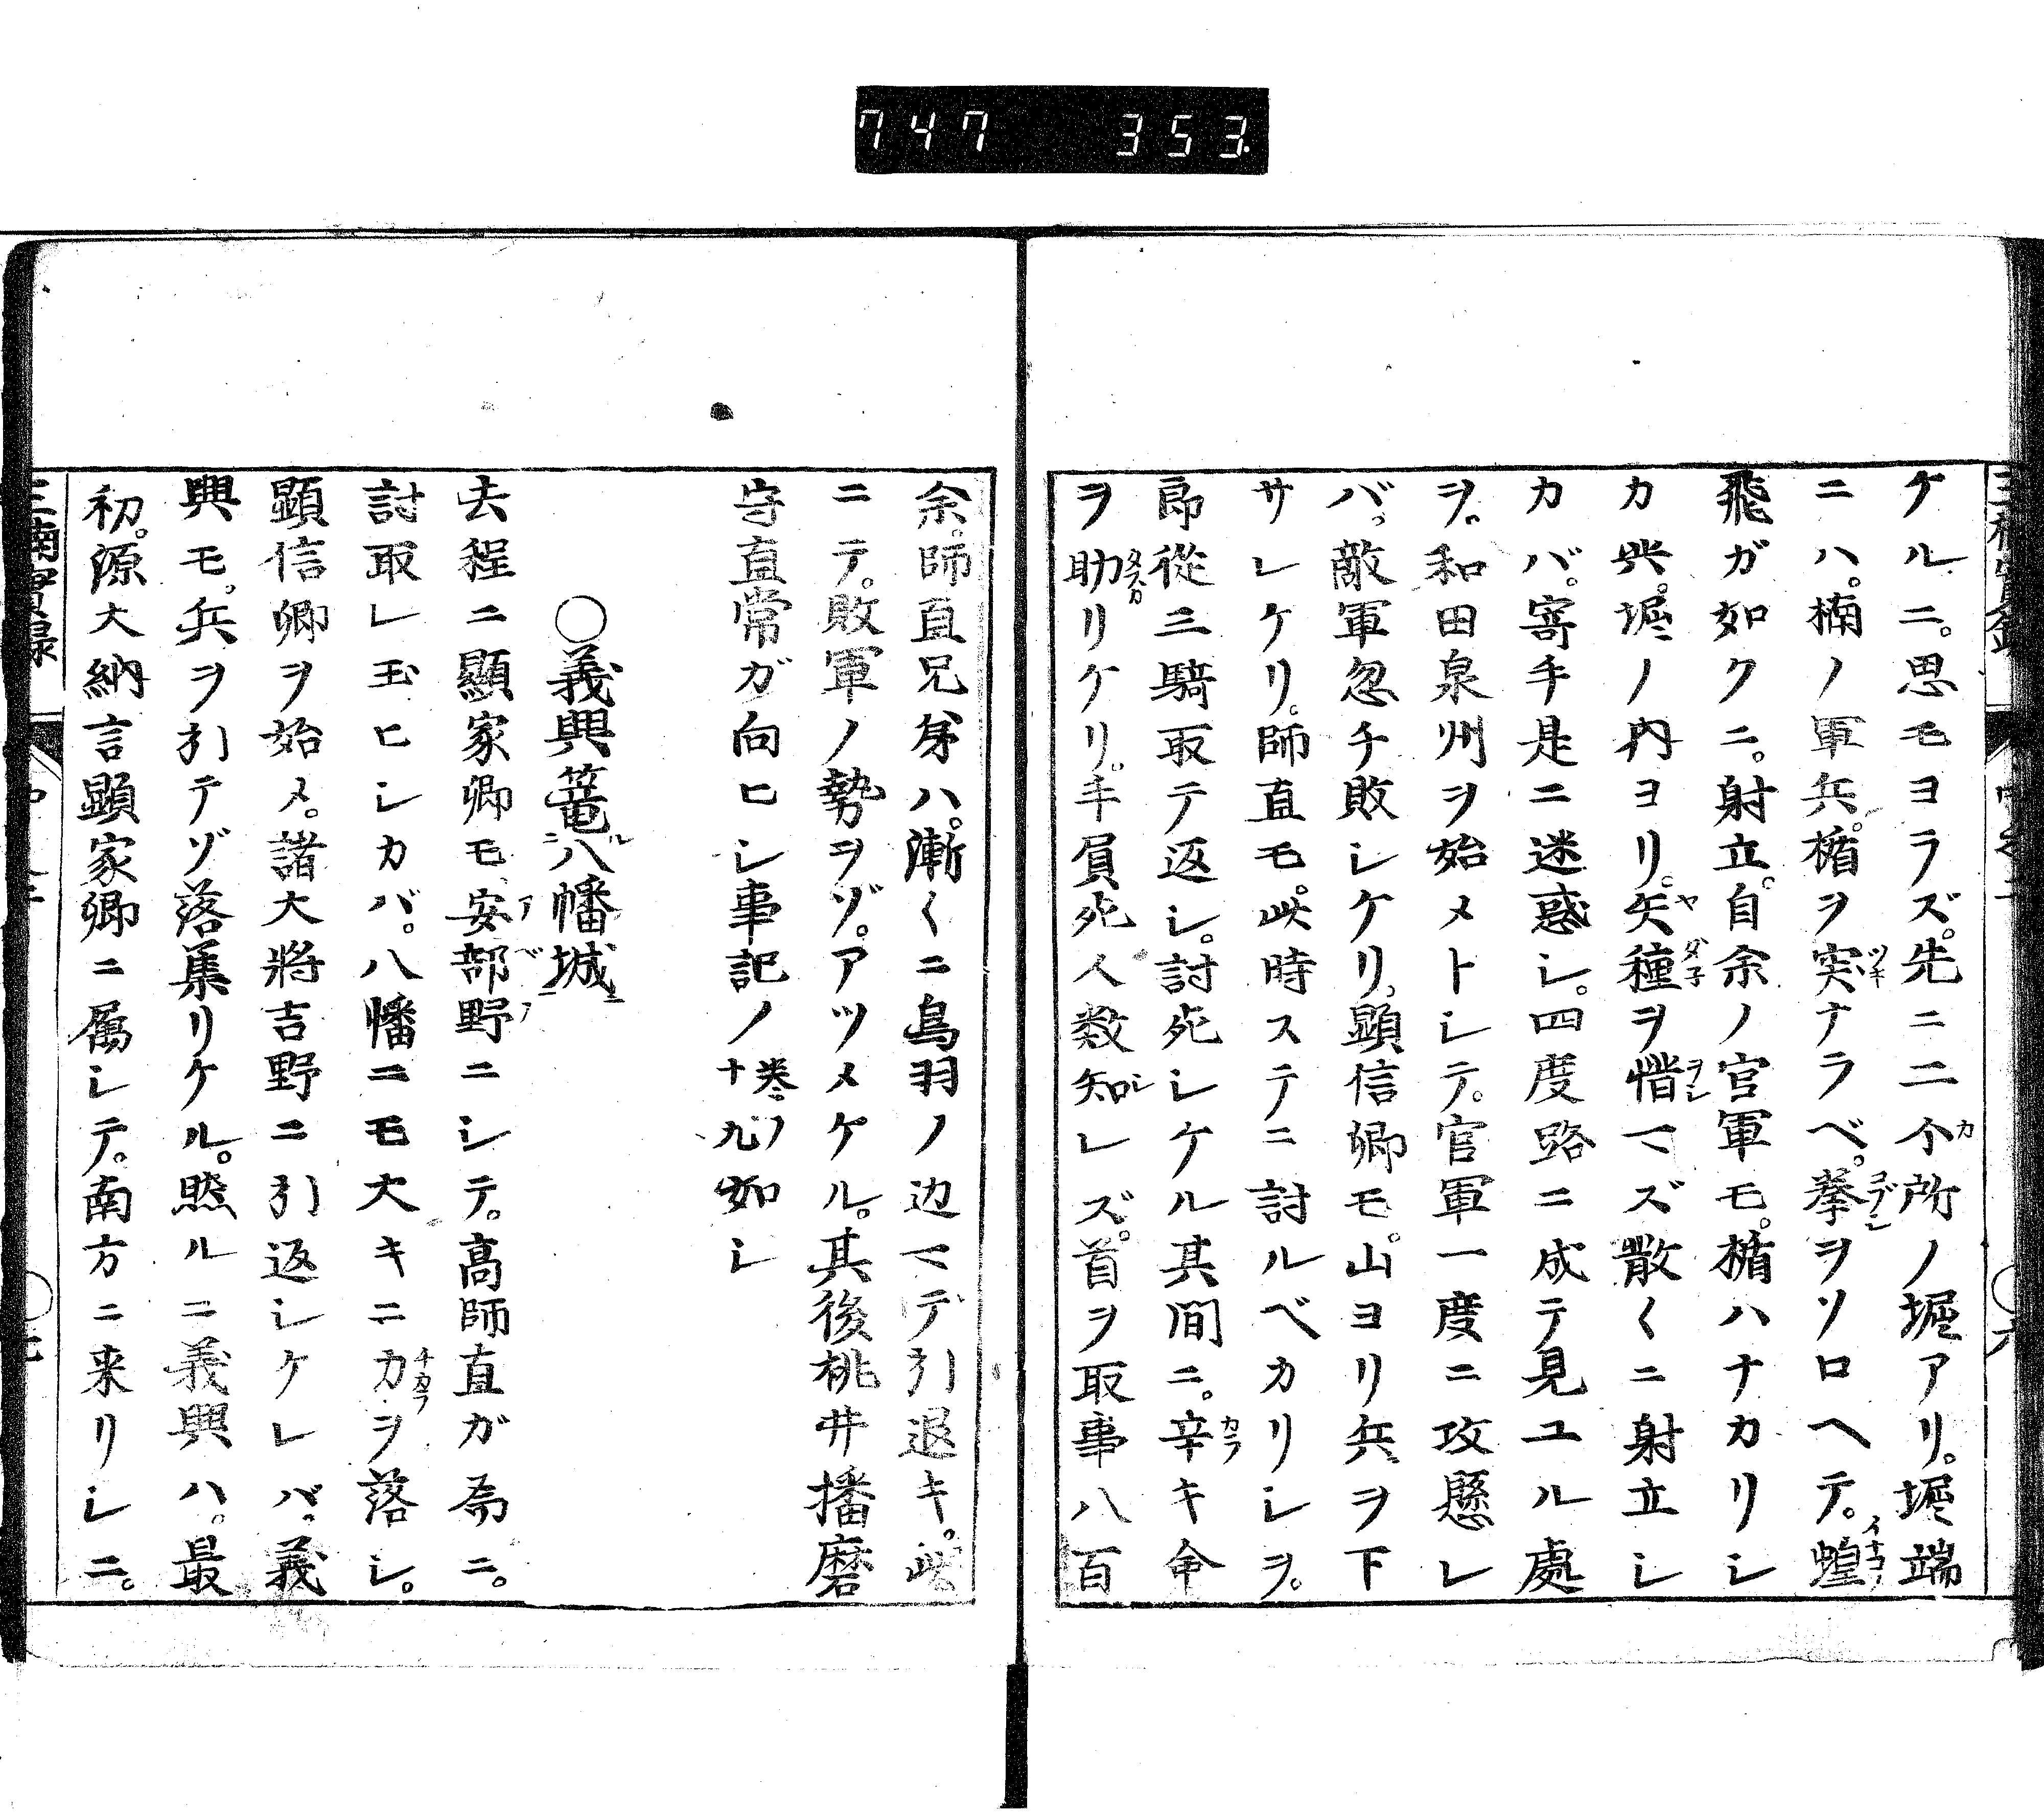 747 353
ケルニ。思モヨラズ。先ニ二个所ノ堀アリ。堀端
ニハ。楠ノ軍兵。楯ヲ突ナラベ。拳ヲソロヘテ。蝗
飛ガ如クニ。射立。自余ノ官軍モ。楯ハナカリシ
カ共。堀ノ内ヨリ。矢種ヲ惜マズ散〱ニ射立シ
カバ。寄手是ニ迷惑シ。四度路ニ成テ見ユル處
ヲ。和田泉州ヲ始メトシテ。官軍一度ニ攻懸レ
バ。敵軍忽チ敗シケリ。顕信卿モ。山ヨリ兵ヲ下
サレケリ。師直モ。此時ステニ討ルベカリシヲ。
郎従三騎取テ返シ。討死シケル其間ニ。辛キ命
ヲ助リケリ。手負死人数知レズ。首ヲ取事八百
余。師直兄弟ハ。漸〱ニ鳥羽ノ辺マデ引退キ。此
ニテ。敗軍ノ勢ヲゾ。アツメケル。其後桃井播磨
守直常ガ向ヒシ事記ノ巻ノ十九如シ
〇義興篭ル八幡城ニ
去程ニ顕家卿モ、安部野ニシテ。高師直ガ為ニ。
討取レ玉ヒシカバ。八幡ニモ大キニ力ヲ落シ。
顕信卿ヲ始メ。諸大将吉野ニ引返シケレバ。義
興モ。兵ヲ引テゾ落集リケル。然ルニ義興ハ。最
初。源大納言顕家卿ニ属シテ。南方ニ来リシニ。